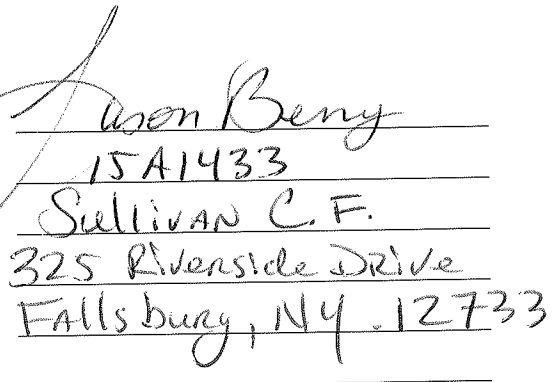 Jason Berry
15A1433
Sullivan C.F.
325 Riverside Drive
Fallsburg, NY. 12733